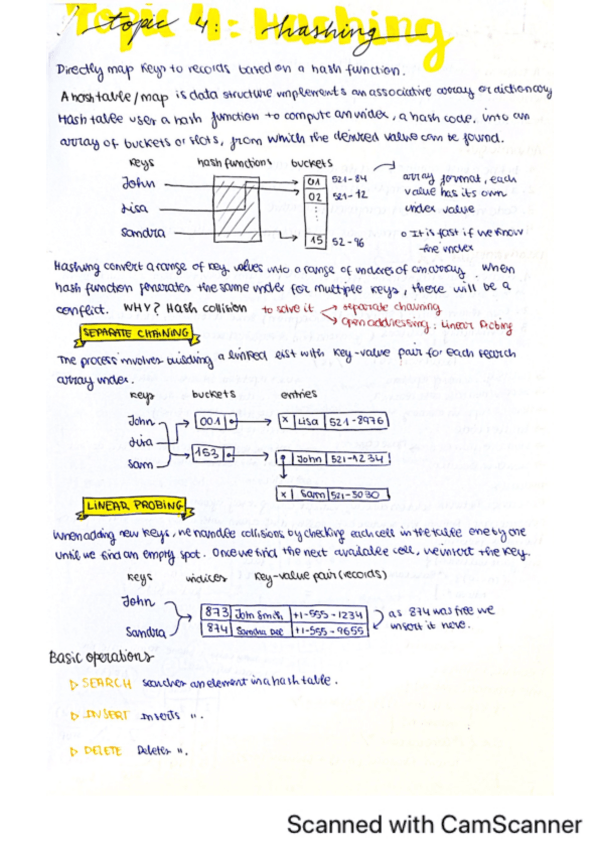 Topic 4: Hashing
topic 4: hashing
Directly map keys to records based on a hash function.
A hash table/map is data structure implements an associative array or dictionary
Hash table uses a hash function to compute an index, a hash code, into an
array of buckets or slots, from which the desired value can be found.
keys hash functions buckets
John 01 521-84 array format, each
02 521-12 value has its own
Lisa index value
Sandra 15 52-96 o It is fast if we know
the index
Hashing convert a range of key values into a range of indexes of an array. When
hash function generates the same index for multiple keys, there will be a
conflict. WHY? Hash collision to solve it separate chaining
open addressing: Linear Probing
SEPARATE CHAINING
The process involves building a linked list with key-value pair for each search
array index.
keys buckets entries
John 001 x Lisa 521-8976
Lisa
153 John 521-1234
Sam
x Sam 521-3030
LINEAR PROBING
When adding new keys, we handle collisions by checking each cell in the table one by one
until we find an empty spot. Once we find the next available cell, we insert the key.
keys indices key-value pair (records)
John
873 John Smith +1-555-1234 as 874 was free we
Sandra 874 Sandra Dee +1-555-9655 insert it here.
Basic operations
▷ SEARCH searches an element in a hash table.
▷ INSERT inserts ".
▷ DELETE Deletes ".
Scanned with CamScanner